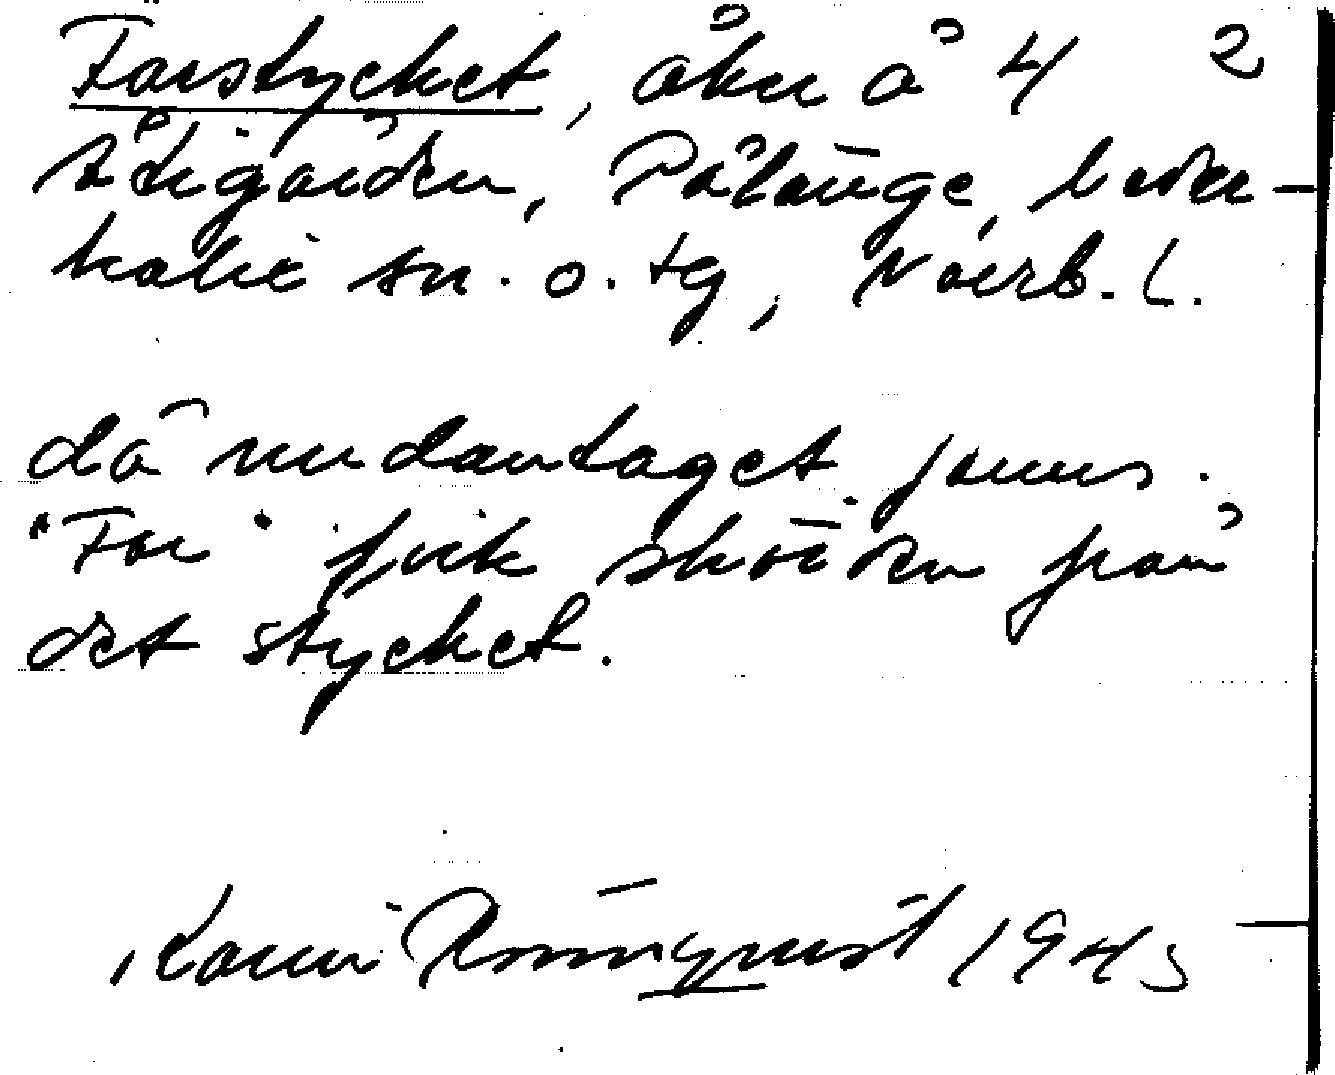 Farstycket, åker å 4 2
Stigården, Pålänge, Neder-
kalix sn. o. tg, Norrb. l.
då undantaget fanns.
"Far" fick skörden från
det stycket.
Karin Rönnquist 1945